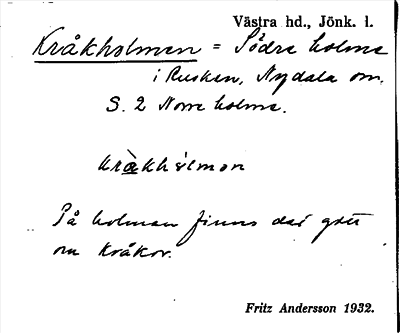 Västra hd., Jönk. l.
Kråkholmen = Södra holme
i Rusken, Nydala sn.
S. 2 Norre holme.
kràkhólmen
På holmen finns det gott
om kråkor.
Fritz Andersson 1932.